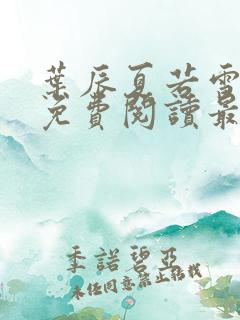 葉辰夏若雪
免費閱讀最
季諾碧亞
未經同意禁止轉載